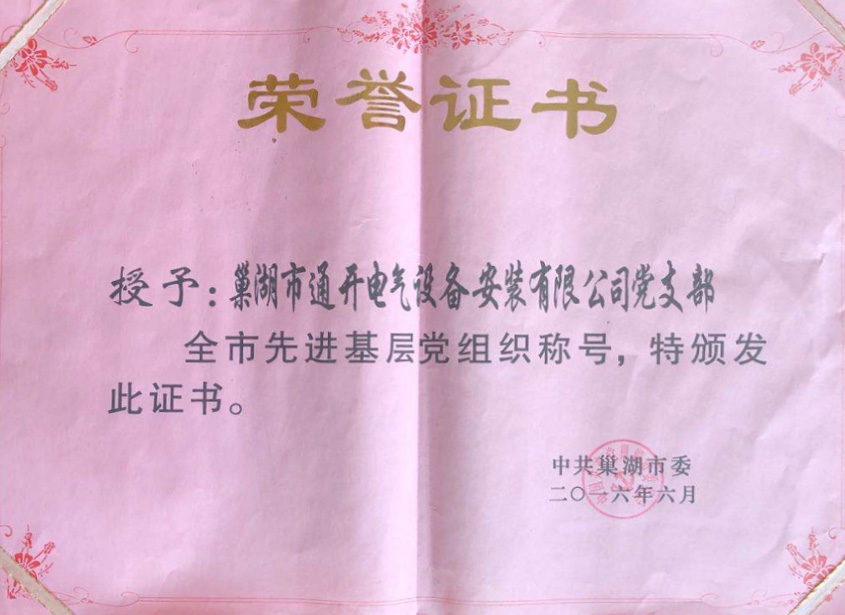 荣誉证书
授予：巢湖市通开电气设备安装有限公司党支部
全市先进基层党组织称号，特颁发
此证书。
中共巢湖市委
二〇一六年六月